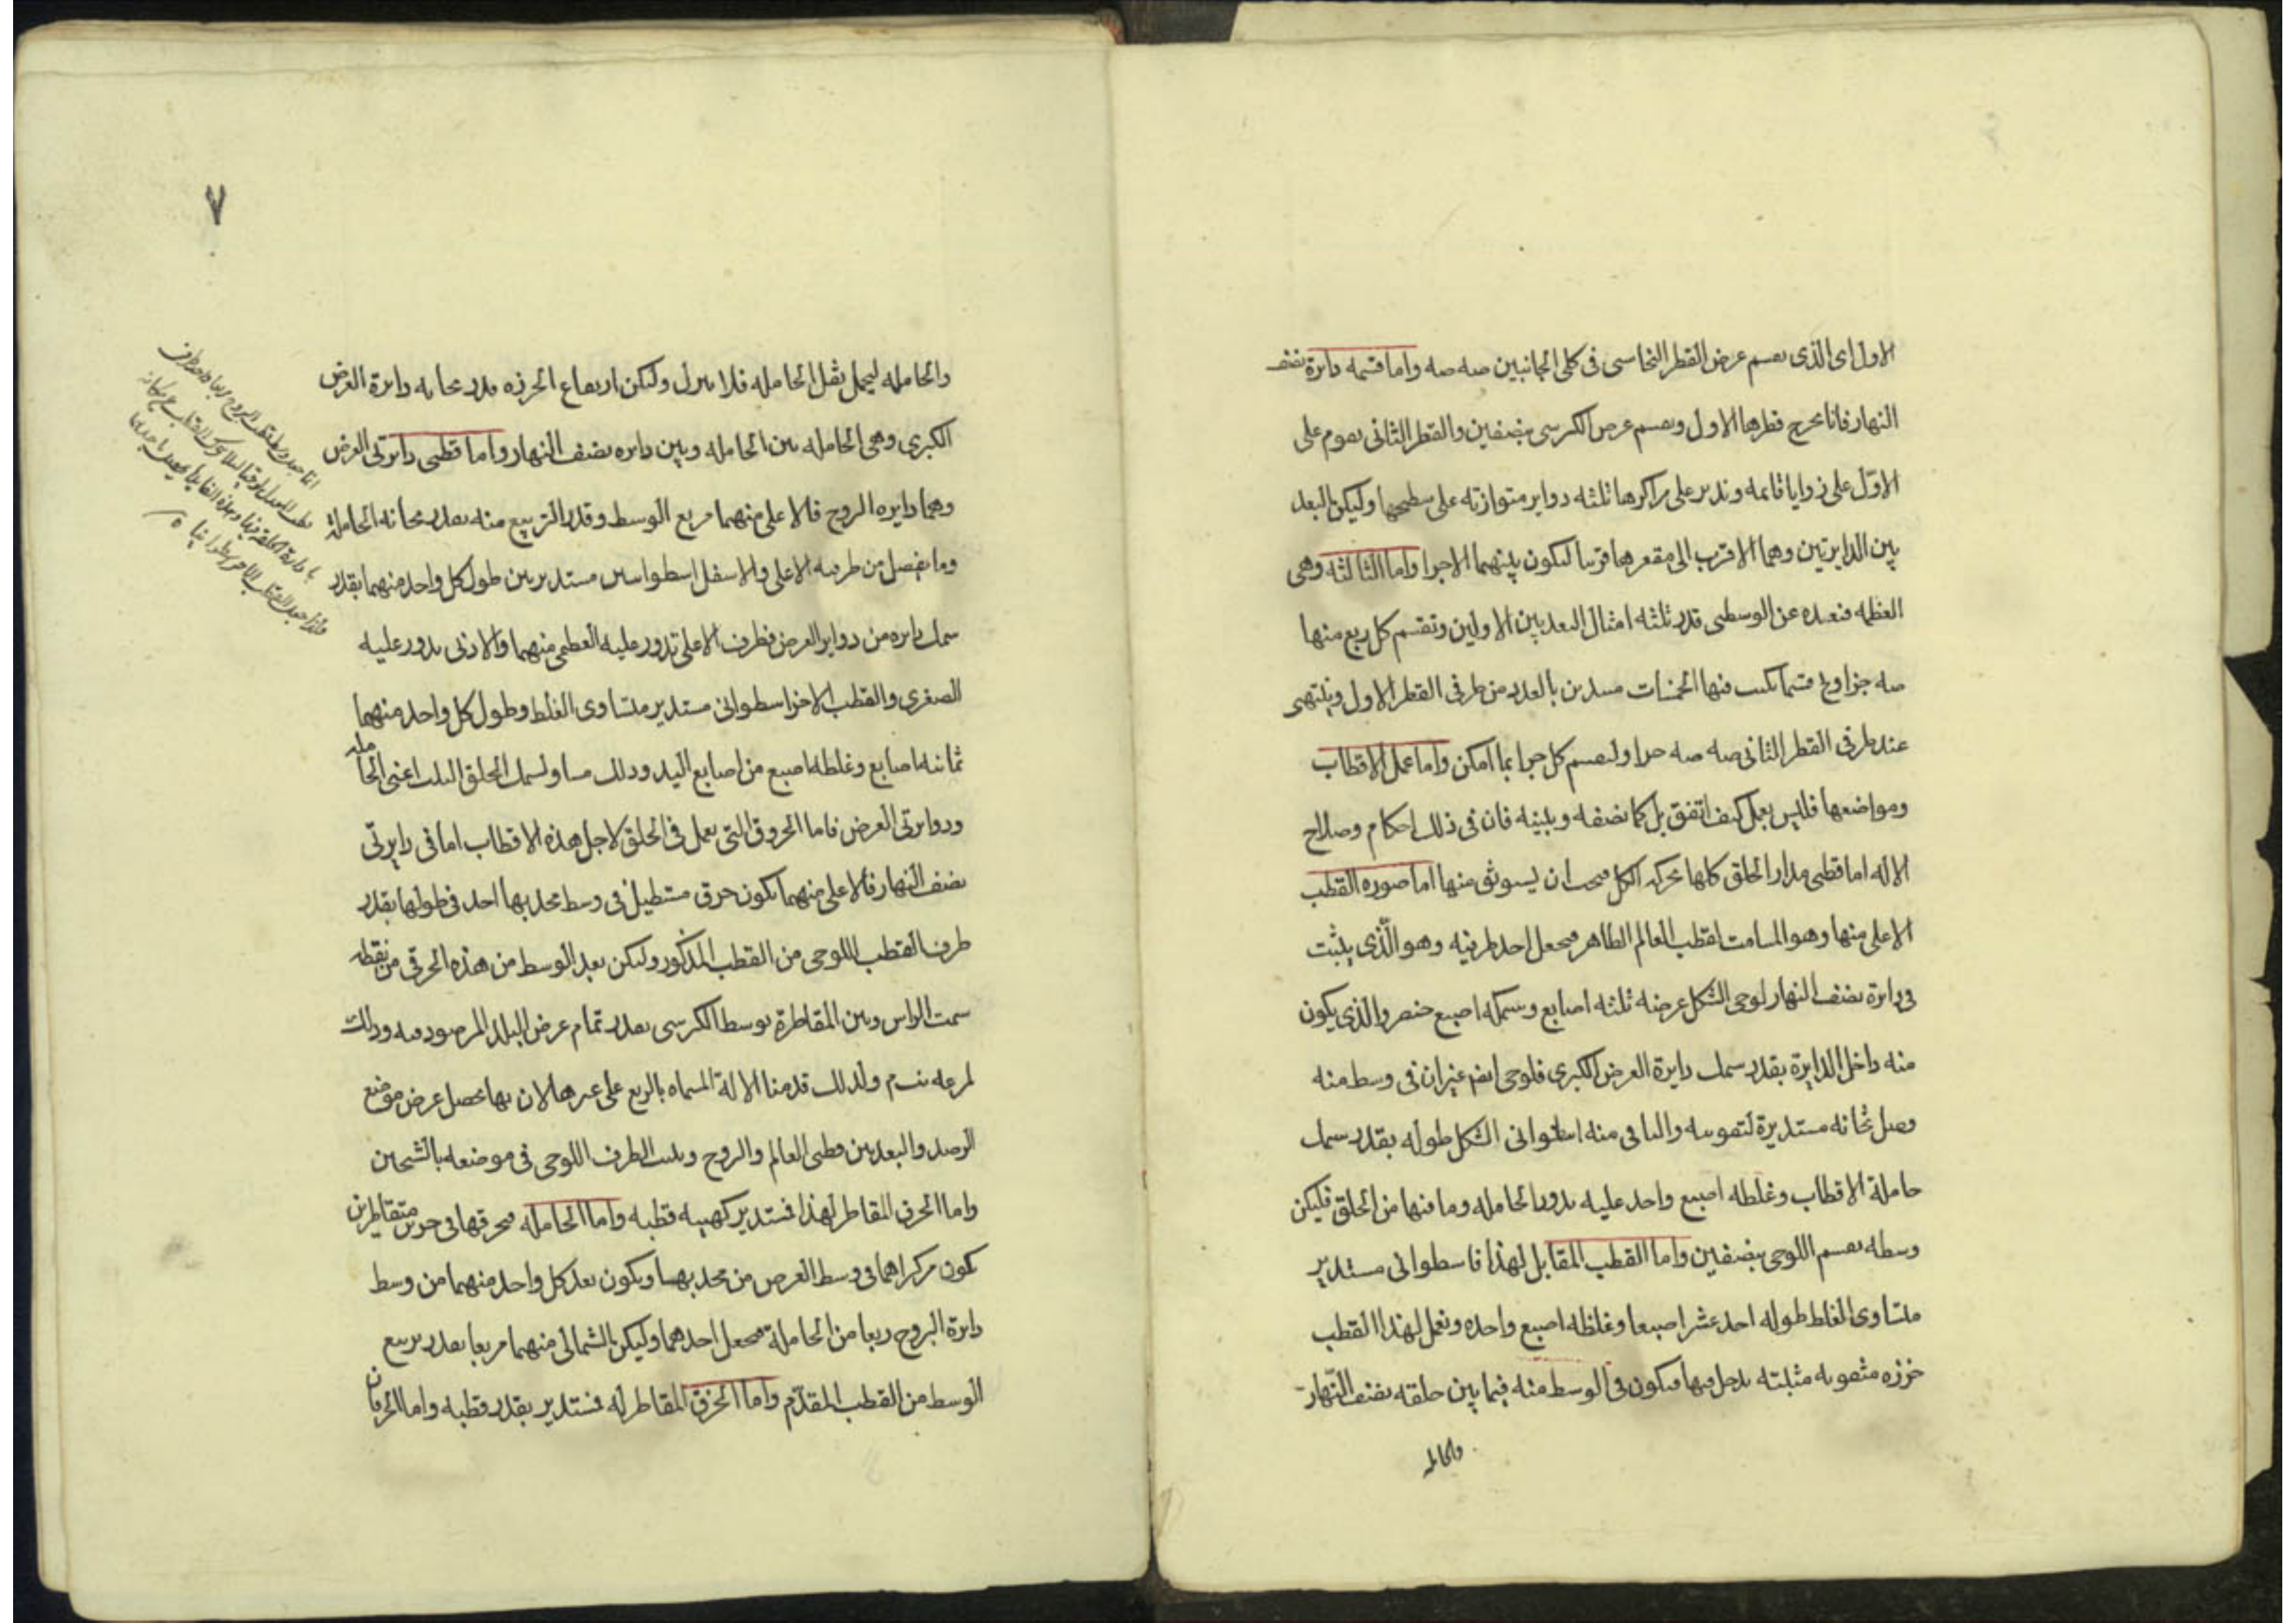 الاول اى الذى يقسم عرض القطر النحاسى فى كلى الجانبين صه صه واما قسمه دايرة نصف
النهار فانا نخرج قطرها الاول ونقسم عرض الكرسى بنصفين والقطر الثانى يقوم على
الاول على زوايا قايمه وندير على مراكزها ثلثه دواير متوازته على سطحها وليكن البعد
بين الدايرتين وهما الاقرب الى مقعرها قريبا لتكون بينهما الاجزا واما الثالثه وهى
العظمه فبعده عن الوسطى قدر ثلثه امثال البعد بين الاولين وتقسم كل ربع منها
صه جزا فيها الخمسات بالعدد من طرفى القطر الاول وينتهى
عند طرفى القطر الثانى صه صه جزا ولنقسم كل جزا بما امكن واما عمل الاقطاب
ومواضعها فليس يعمل كيف اتفق بل كما نصفه ونبينه فان فى ذلك احكام وصلاح
الاله اما قطبى مدار الحلق كلها بحركه الكل فيجب ان يستوثق منها اما صوره القطب
الاعلى منها وهو المسامت لقطب العالم الظاهر فيجعل احد طرفيه وهو الذى يثبت
فى دايرة نصف النهار لوحى الشكل عرضه ثلثه اصابع وسمكه اصبع خنصر والذى يكون
منه داخل الدايرة بقدر سمك دايرة العرض الكبرى فلوحى ايضا غير ان فى وسط منه
مستديرة لتقويسه والباقى منه اسطوانى الشكل طوله بقدر سمك
حاملة الاقطاب وغلظه اصبع واحد عليه يدور الحامله وما فيها من الحلق فليكن
وسطه يقسم اللوحى بنصفين واما القطب المقابل لهذا فاسطوانى مستدير
متساوى الغلظ طوله احد عشر اصبعا وغلظه اصبع واحده ونعمل لهذا القطب
خرزه مثقوبه مثبته يدخل فيها فيكون فى الوسط منه فيما بين حلقه نصف النهار
والحامله
٧
والحامله ليحمل ثقل الحامله فلا ينزل وليكن ارتفاع الخرزه بقدر ثخانه دايرة العرض
الكبرى وهى الحامله بين الحامله وبين دايره نصف النهار واما قطبى دايرتى العرض
وهما دايره البروج فالاعلى منهما مربع الوسط وقدر التربيع منه بقدر ثخانه الحاملة
وما يفصل من طرفيه الاعلى والاسفل اسطوانين مستديرين طول كل واحد منهما بقدر
سمك دايره من دواير العرض فطرف الاعلى تدور عليه العظمى منهما والادنى يدور عليه
الصغرى والقطب الاخر اسطوانى مستدير متساوى الغلظ وطول كل واحد منهما
ثمانيه اصابع وغلظه اصبع من اصابع اليد وذلك مساو لسمك الحلق الثلث اعنى الحامله
ودوايرتى العرض فاما الخروق التى يعمل فى الحلق لاجل هذه الاقطاب اما فى دايرتى
نصف النهار فالاعلى منهما يكون خرق مستطيل فى وسط محدبها احد فى طولها بقدر
طرف القطب اللوحى من القطب المذكور وليكن بعد الوسط من هذه الخرق من نقطه
سمت الراس وبين المقاطرة بوسط الكرسى بقدر تمام عرض البلد المرصود فيه وذلك
ولذلك قدمنا الالة المسماه بالربع على غيرها لان بها يحصل عرض موضع
الرصد والبعد بين قطبى العالم والبروج ويثبت الطرف اللوحى فى موضعه بالشحين
واما الخرق المقاطر لهذا فستدير كهيئه قطبه واما الحامله فخرقها فى جزئين متقاطرين
يكون مركزاهما فى وسط العرض من محدبها ويكون بعد كل واحد منهما من وسط
دايرة البروج ربعا من الحاملة فيجعل احدهما وليكن الشمالى منهما مربعا بقدر تربيع
الوسط من القطب المقدم واما الخرق المقاطر له فستدير بقدر قطبه واما الخرقان